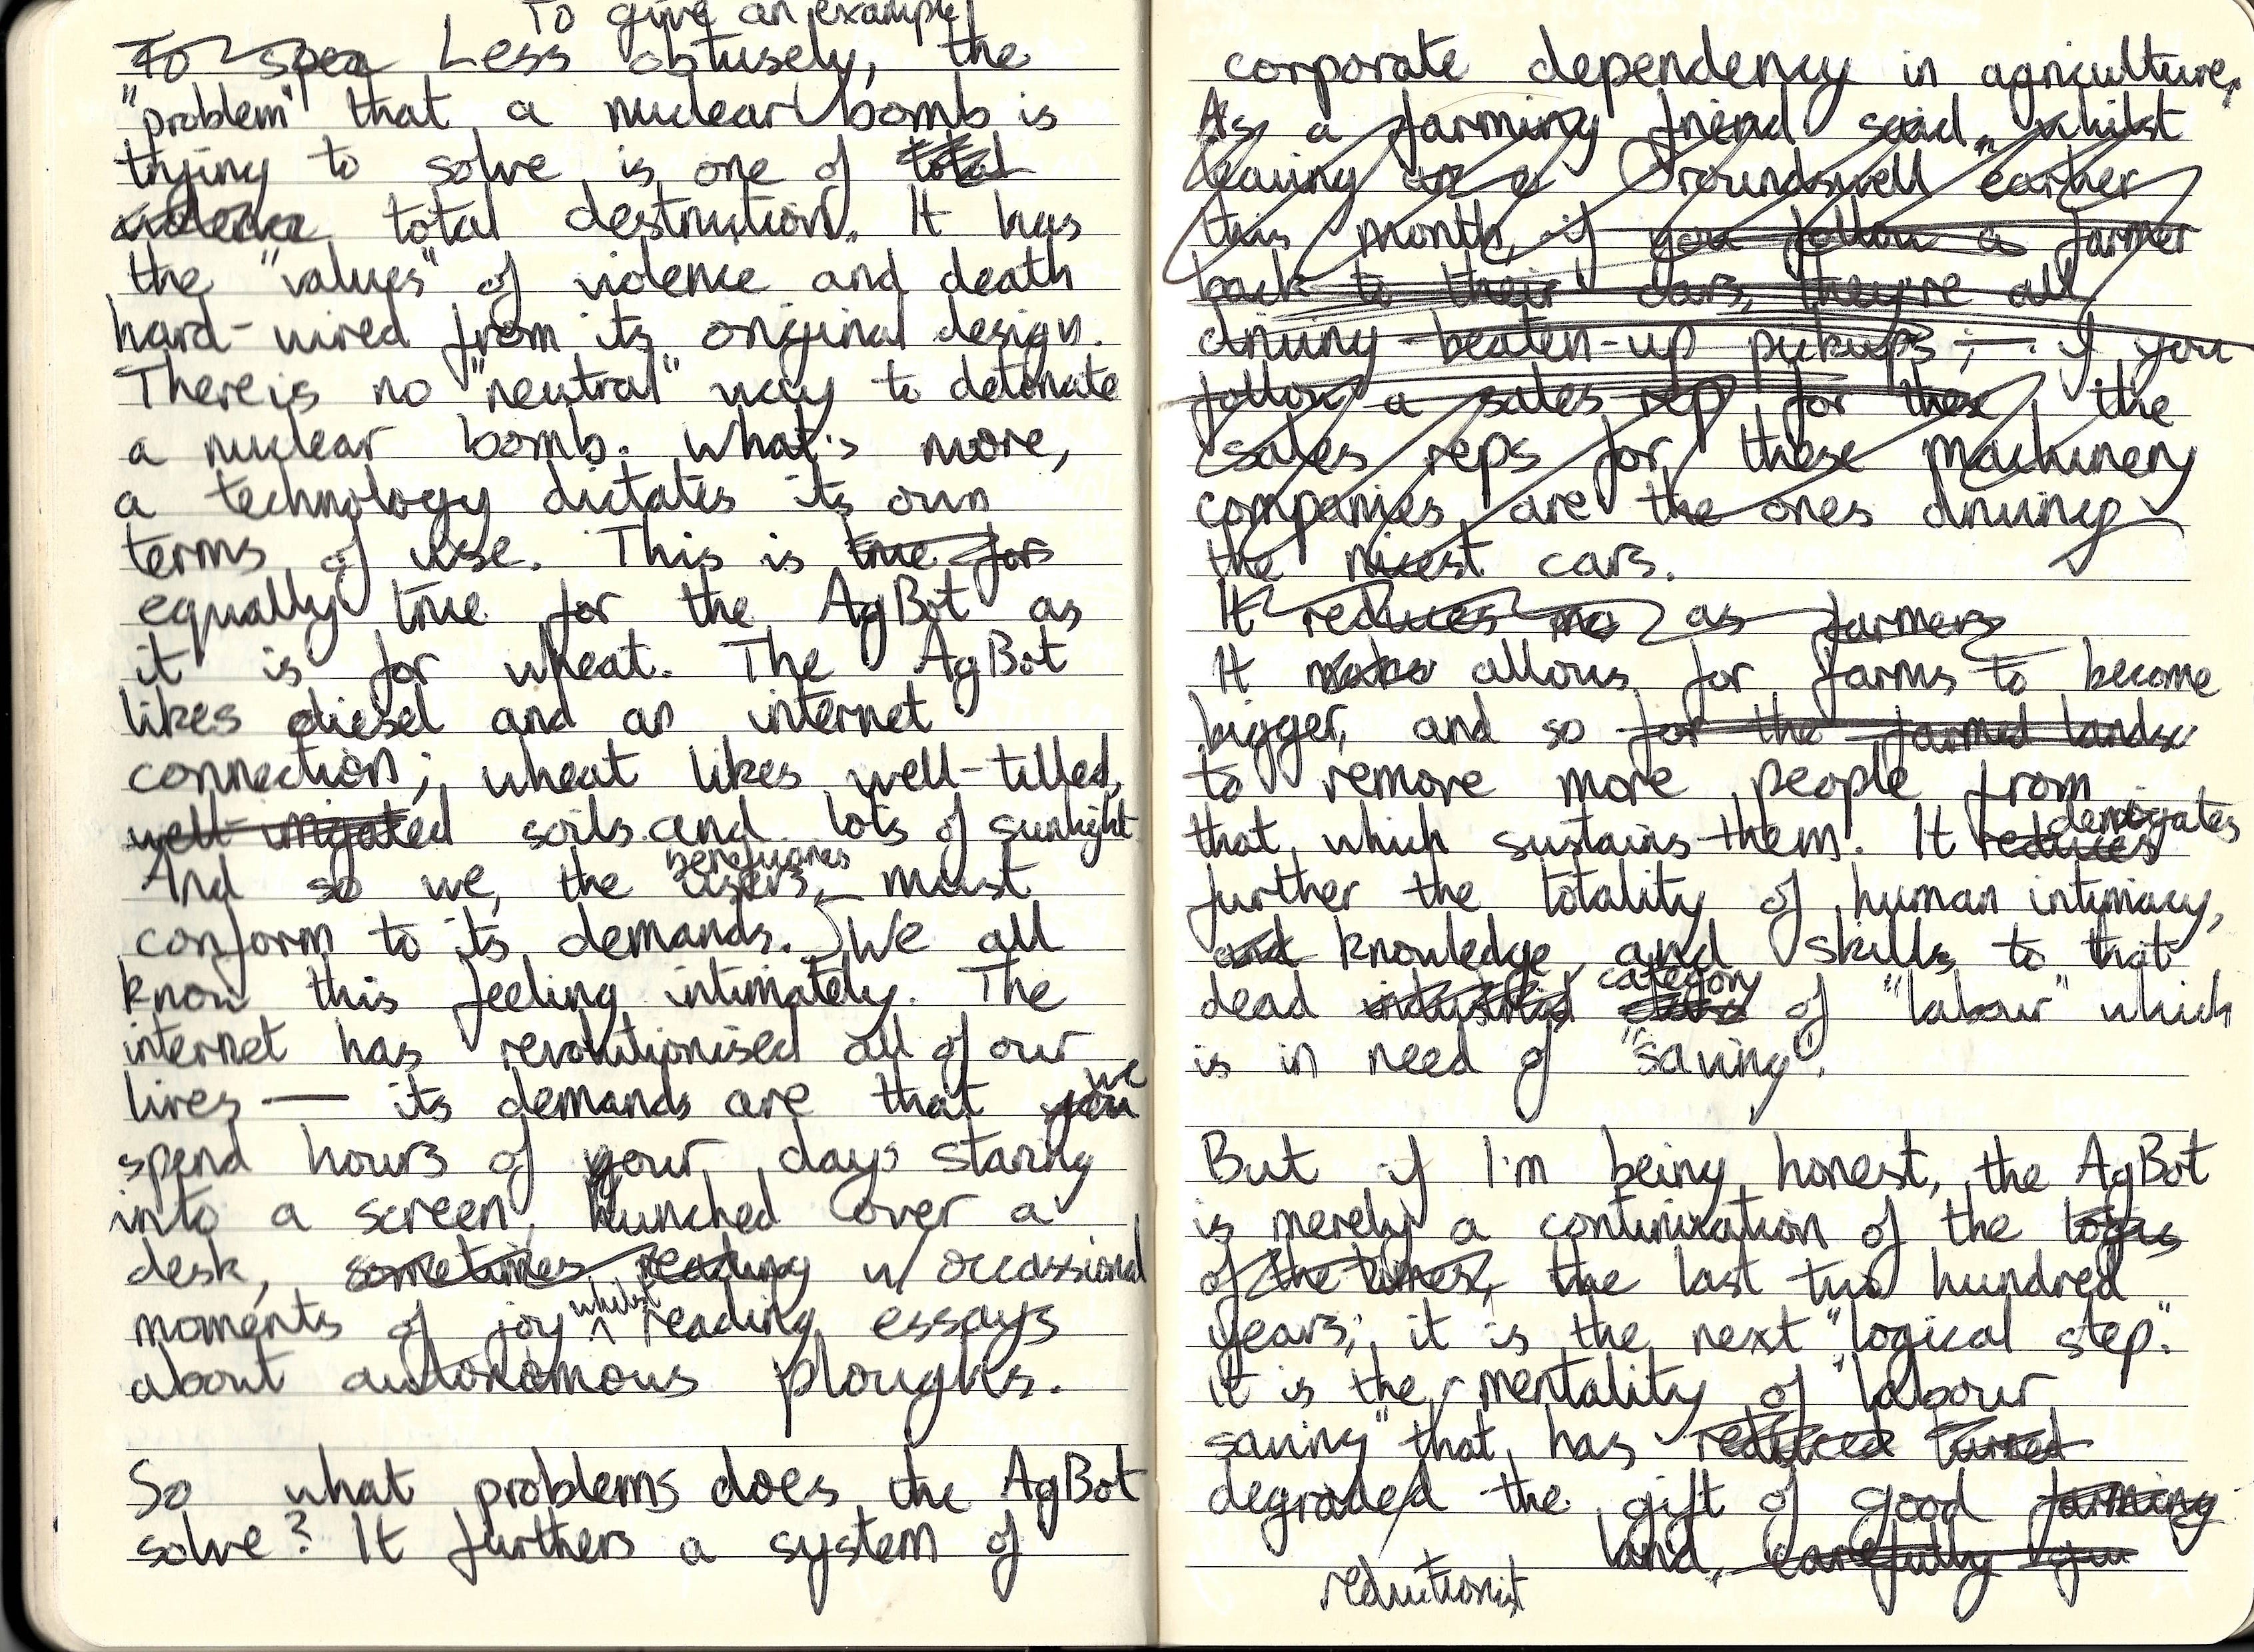 To give an example
To spea Less obtusely, the
"problem" that a nuclear bomb is
trying to solve is one of total
violence total destruction. It has
the "values" of violence and death
hard-wired from its original design.
There is no "neutral" way to detonate
a nuclear bomb. What's more,
a technology dictates its own
terms of use. This is true for
equally true for the AgBot as
it is for wheat. The AgBot
likes diesel and an internet
connection; wheat likes well-tilled,
well-irrigated soils and lots of sunlight
beneficiaries
And so we, the users, must
conform to its demands. We all
know this feeling intimately. The
internet has revolutionised all of our
we
lives — its demands are that you
spend hours of your days staring
into a screen, hunched over a
desk, sometimes reading w/ occassional
whilst
moments of joy ^ reading essays
about autonomous ploughs.
So what problems does the AgBot
solve? It furthers a system of
corporate dependency in agriculture.
As a farming friend said, whilst
leaving Groundswell earlier
this month, if you follow a farmer
back to their cars, they're all
driving beaten-up pickups; — if you
follow a sales rep for these, the
sales reps for these machinery
companies are the ones driving
the nicest cars.
It reduces as farmers
It allows for farms to become
bigger, and so for the farmed landsc
to remove more people from
denigrates
that which sustains them. It reduces
further the totality of human intimacy,
and knowledge, and skills to that
category
dead industrial of "labour" which
is in need of "saving".
But if I'm being honest, the AgBot
is merely a continuation of the logics
of the times, the last two hundred
years; it is the next "logical step."
It is the mentality of "labour
saving" that has reduced turned
degraded the gift of good farming
land, carefully
reductionist